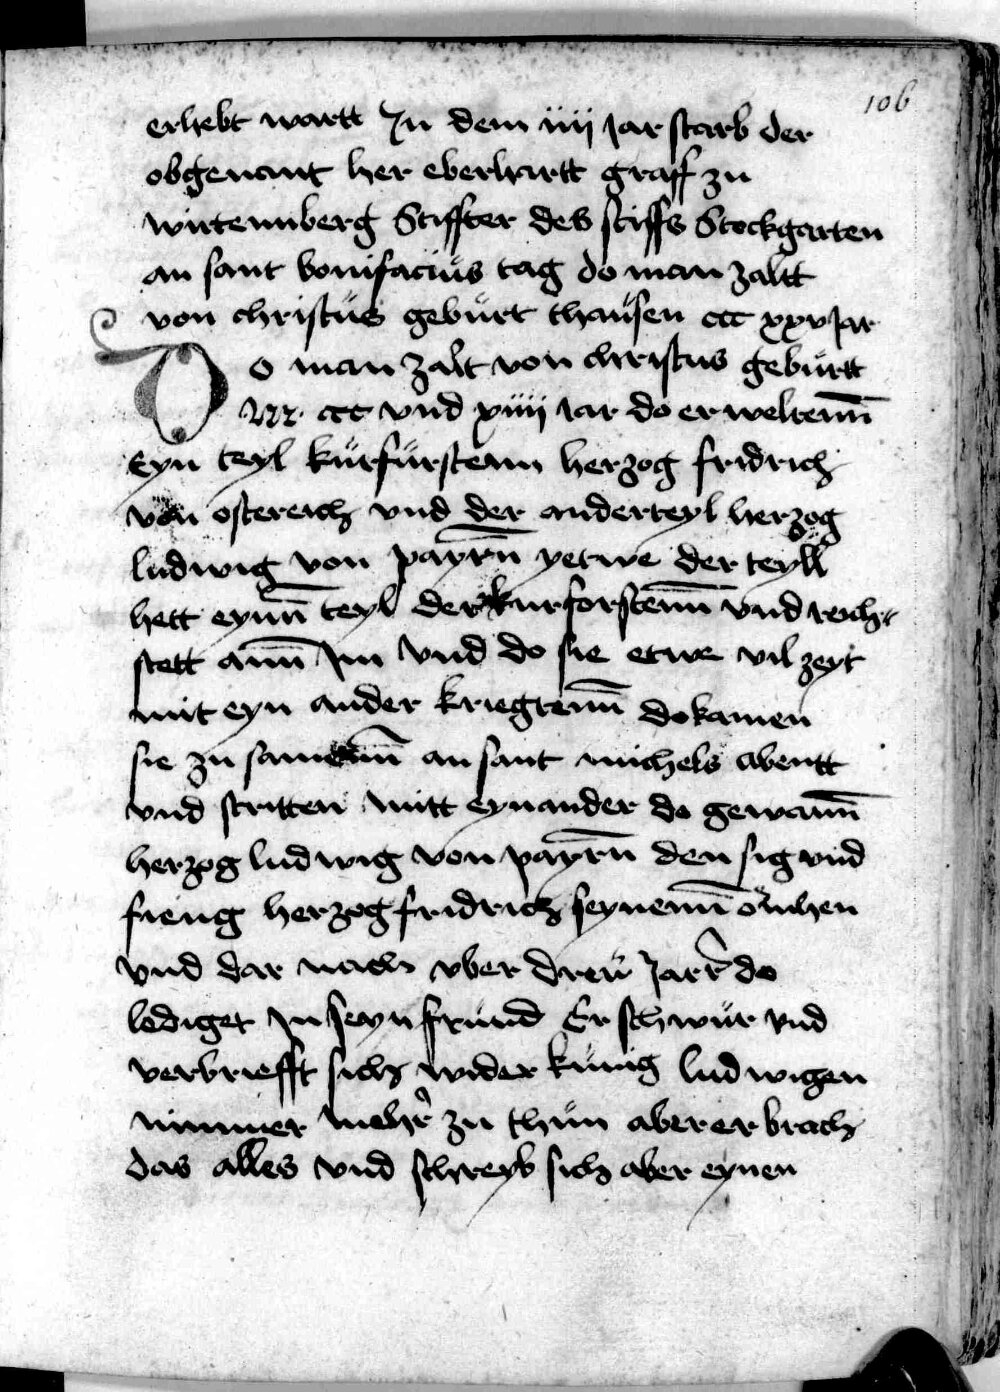 106
erhebt wartt Jn dem iiij Jar starb der
obgenant her eberhartt graff zu
wirtennberg Stiffter des stiffs Stockgarten
an sant bonifacius tag do man zaltt
von christus geburt thausen ccc xxv Jar
Do man zalt von christus geburtt
M ccc vnd xiiij Jar do er weltenn̄
Eyn teyl kurfurstenn herzog fridrich
von ostereich vnd der anderteyl herzog
ludwig von payrn̄ yetwe der teyll
hett eynn̄ teyl der kurforstenn̄ vnd reichs
stett ann̄ Jm vnd do sie etwe vil zeyt
mit eyn ander kriegtenn̄ do kamen
sie zu samenn̄ an sant michels abentt
vnd stritten mitt eynander do gewann̄
herzog ludwig von payrn̄ den sig vnd
fieng herzog fridrich seynenn̄ ohen
vnd dar nach vber dreu Jarr do
lediget Jn seyn frund Er schwur vnd
verbriefft sich wider kunig ludwigen
nimmer mehr zu thun aber er brach
das alles vnd schreyb sich aber eynen